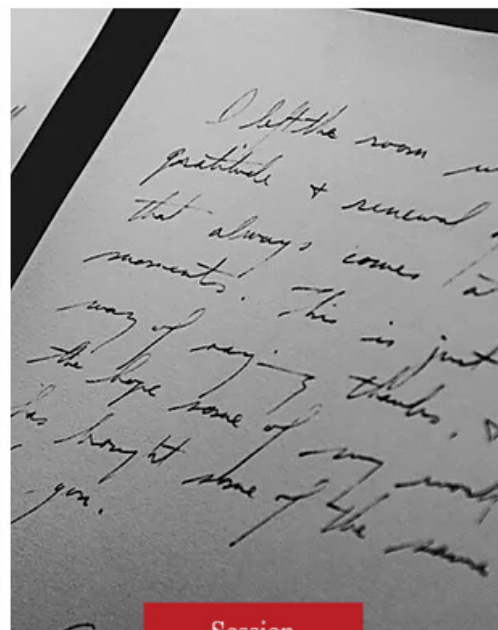 I left the room
gratitude + renewal
that always comes
moments. This is just
way of saying thanks,
the hope some of my work
has brought some of the same
you.
Session